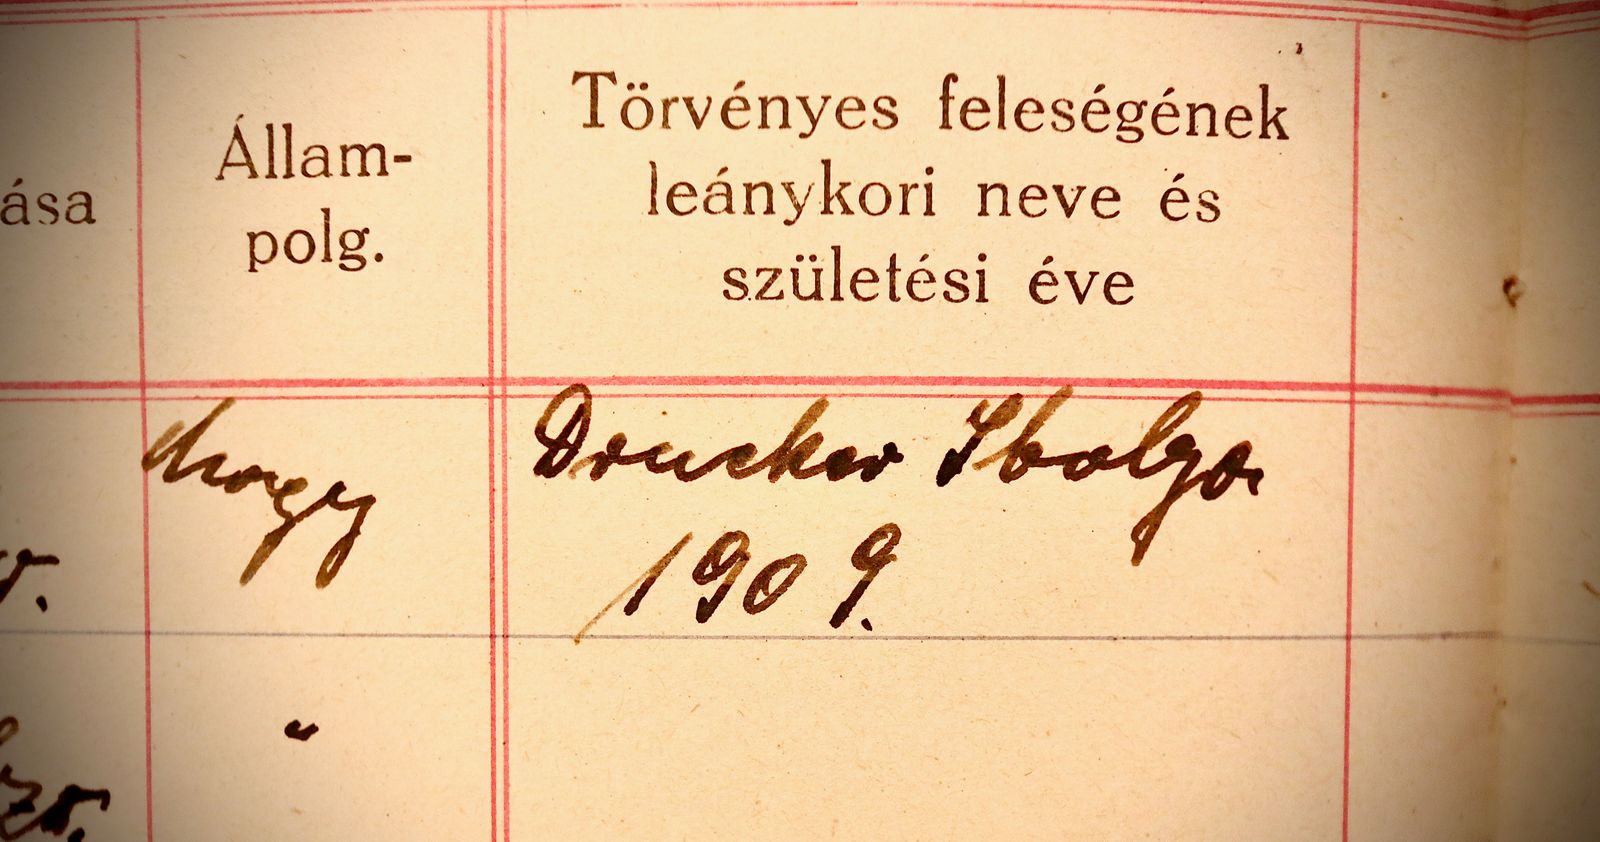 ása
Állam-
polg.
Törvényes feleségének
leánykori neve és
születési éve
magy
Drucker Ibolya
1909.
"